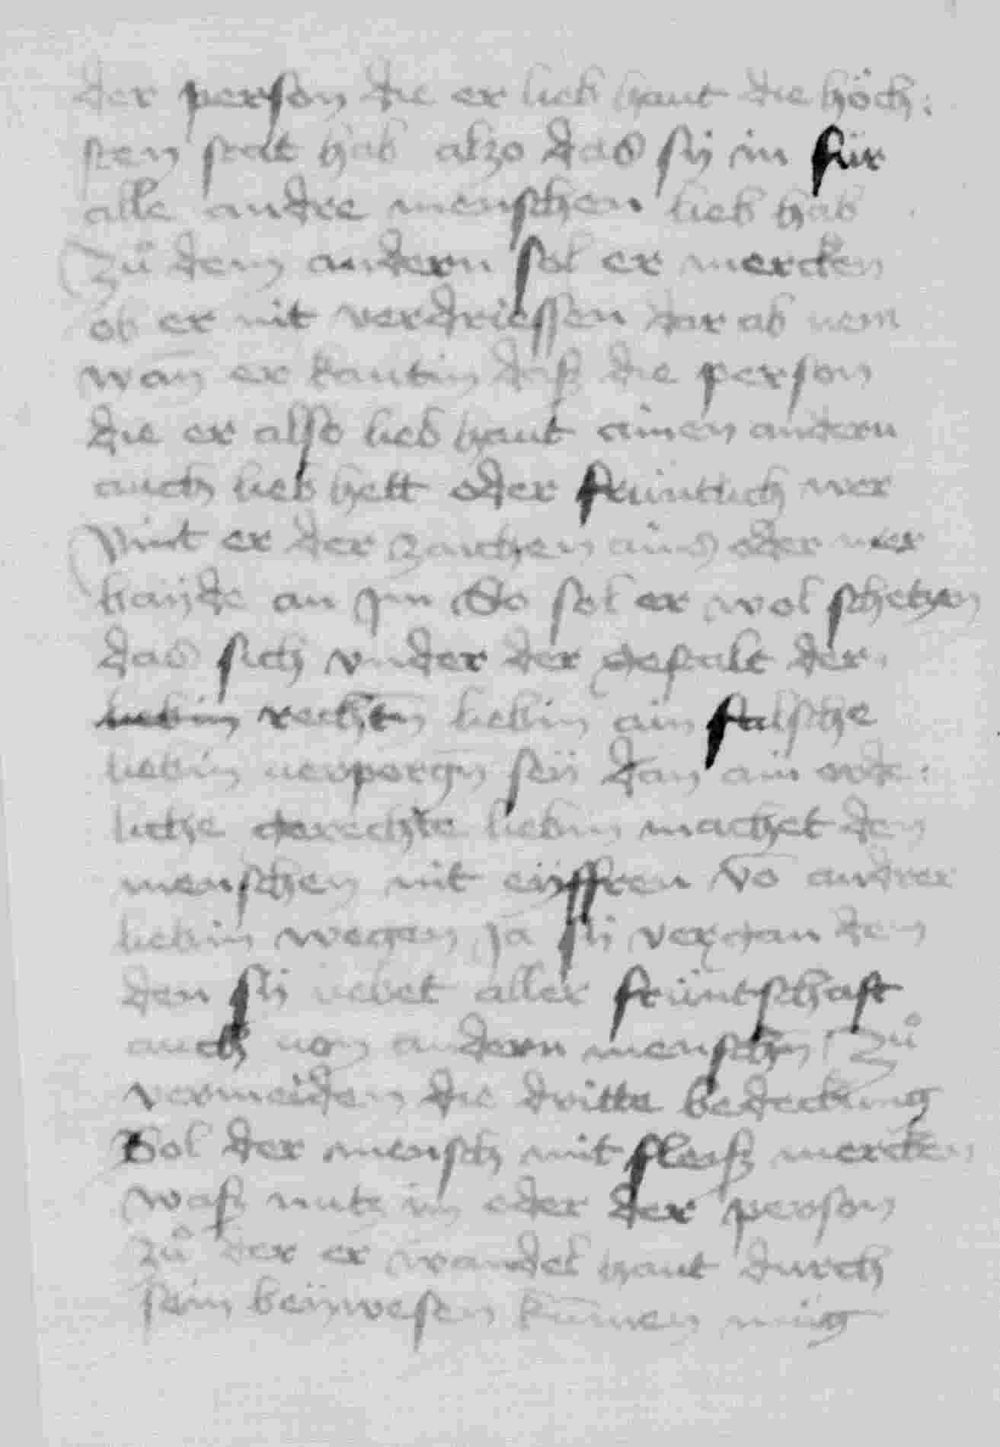 der person die er lieb haut die höch:
sten stat hab alzo das sÿ in für
alle andre menschen lieb hab
Zů dem andern sol er mercken
ob er nit verdriessen dar ab nem
wan̄ er kantin daß die person
die er also lieb haut ainen andern
auch lieb hett oder früntlich wer
Vint er der zaichen ains oder mer
baÿde an Jm So sol er wol schetzen
das sich vnder der gestalt der
liebin rechtn̄ liebin ain falsche
liebin verporgn̄ seÿ dan ain orde:
liche gerechte liebin machet den
menschen nit eÿffren vō andrer
liebin wegen Ja sÿ vergan dem
den sÿ liebet aller früntschaft
auch von andern menschn̄ Zů
vermeiden die dritte bedeckung
Sol der mensch mit fleiß mercken
waß nutz im oder der person
zů der er wandel haut durch
sein beÿwesen kumen müg